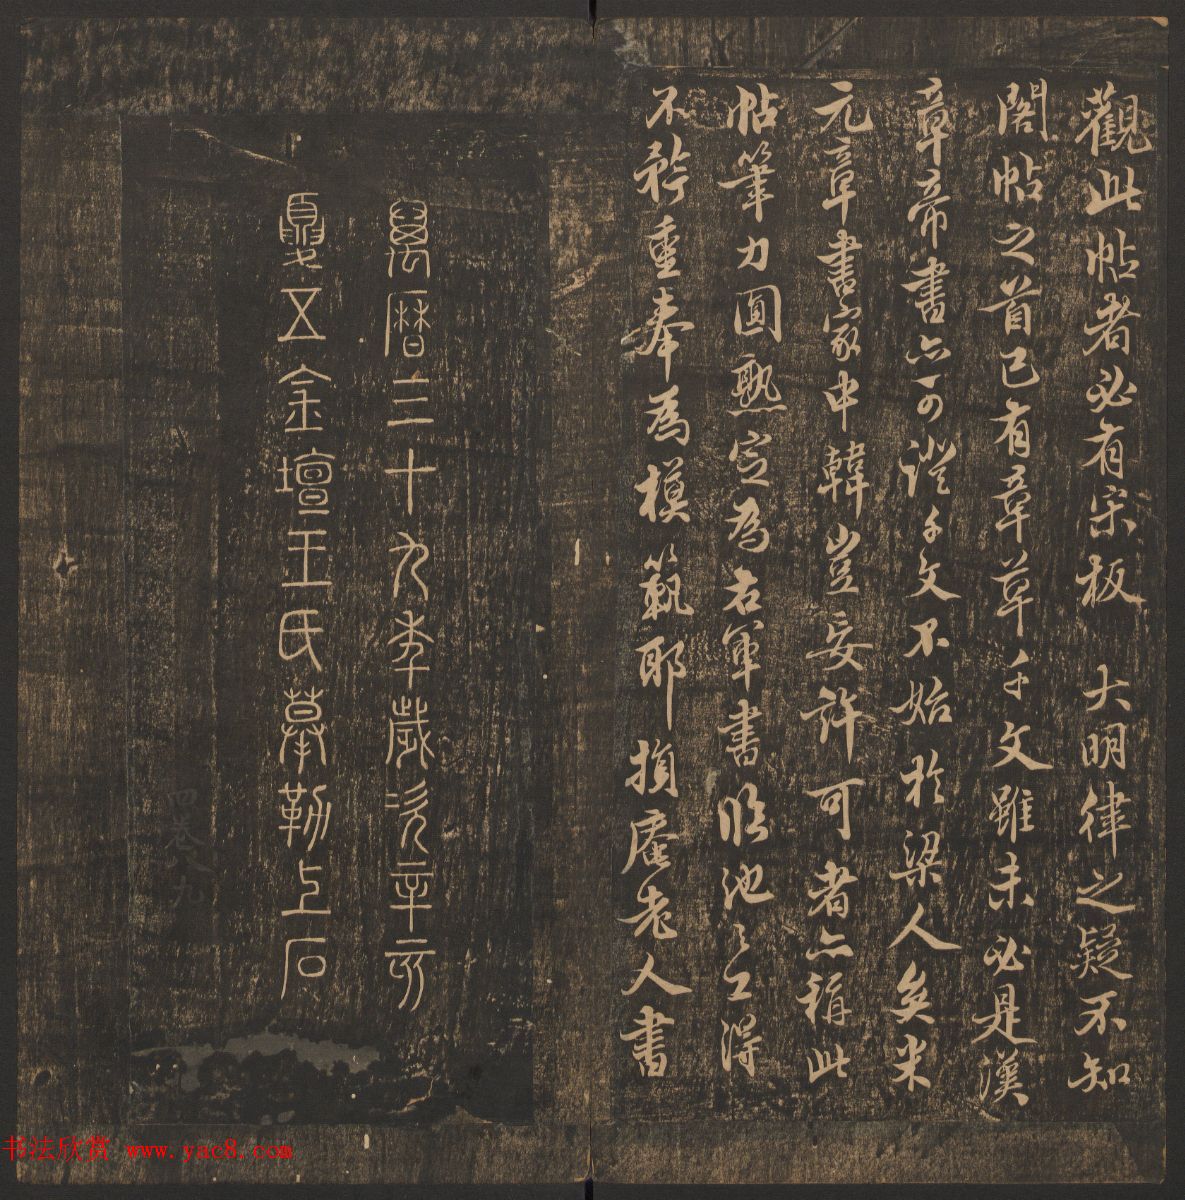 觀此帖者必有宋板 大明律之疑不知
閣帖之首已有章草千文雖未必是漢
章帝書亦可證千文不始於梁人矣米
元章書家中韓豈妄許可者亦稱此
帖筆力圓熟定為右軍書臨池之工得
不矜重奉為模範耶損庵老人書
萬曆三十九年歲次辛亥
夏五金壇王氏摹勒上石
四卷八九
书法欣赏 www.yac8.com